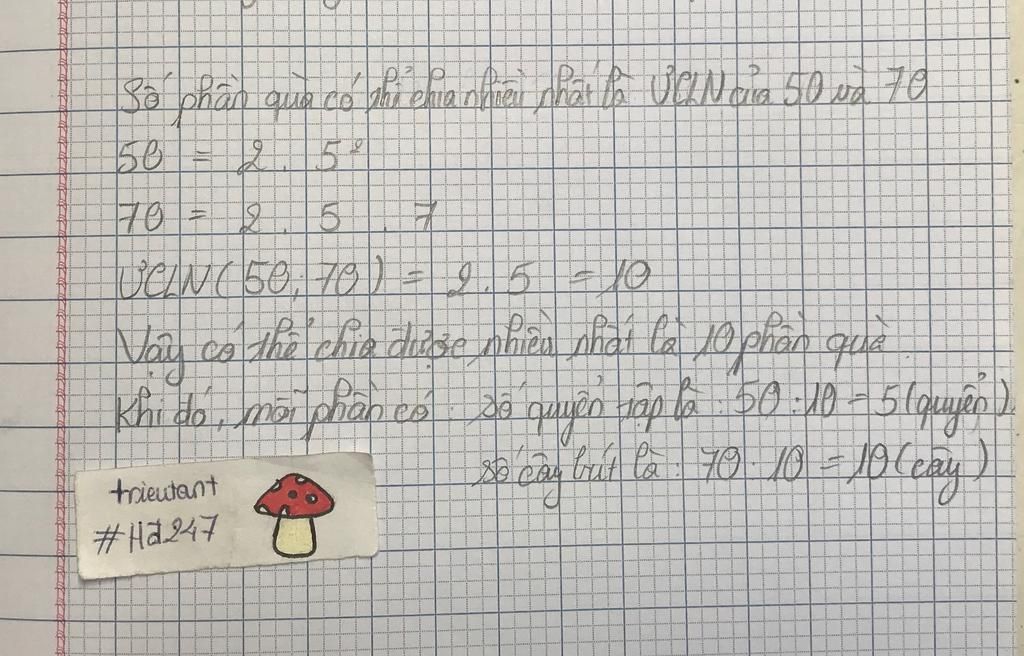 Số phần quà có thể chia nhiều nhất là ƯCLN của 50 và 70
50 = 2 . 5²
70 = 2 . 5 . 7
ƯCLN(50, 70) = 2 . 5 = 10
Vậy có thể chia được nhiều nhất là 10 phần quà
Khi đó, mỗi phần có : số quyển tập là : 50 : 10 = 5 (quyển)
số cây bút là : 70 : 10 = 10 (cây)
trieutant
#Hd247